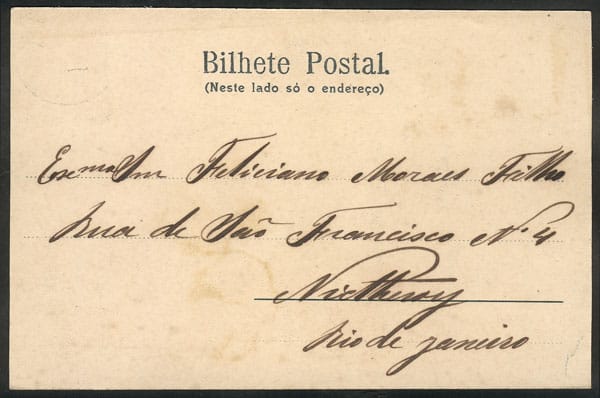 Bilhete Postal.
(Neste lado só o endereço)
Exema Snr Feliciano Moraes Filho
Rua de São Francisco Nº 4
Nictheroy
Rio de janeiro